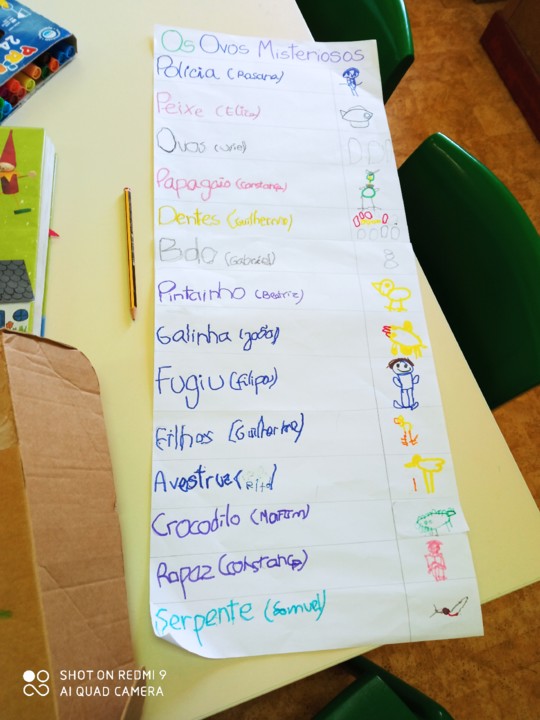 Os Ovos Misteriosos
Polícia (Rosana)
Peixe (Elisa)
Ovos (Uriel)
Papagaio (Constança)
Dentes (Guilherme)
Bdo (Gabriel)
Pintainho (Beatriz)
Galinha (João)
Fugiu (Filipa)
Filhos (Guilherme)
Avestruz (Rita)
Crocodilo (Martim)
Rapaz (Constança)
Serpente (Samuel)
24
SHOT ON REDMI 9
AI QUAD CAMERA